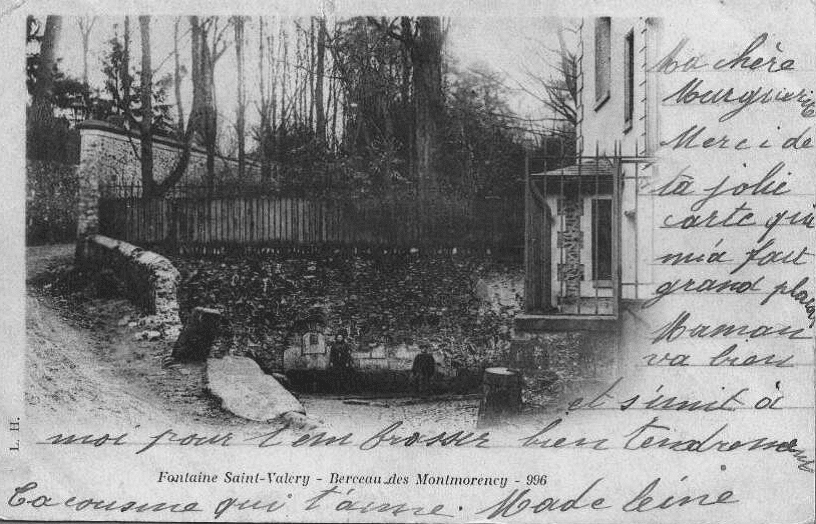 Ma chère
Marguerite
Merci de
ta jolie
carte qui
m'a fait
grand plaisir
Maman
va bien
et s'unit à
moi pour t'embrasser bien tendrement
L. H.
Fontaine Saint-Valery - Berceau des Montmorency - 996
Ta cousine qui t'aime. Madeleine